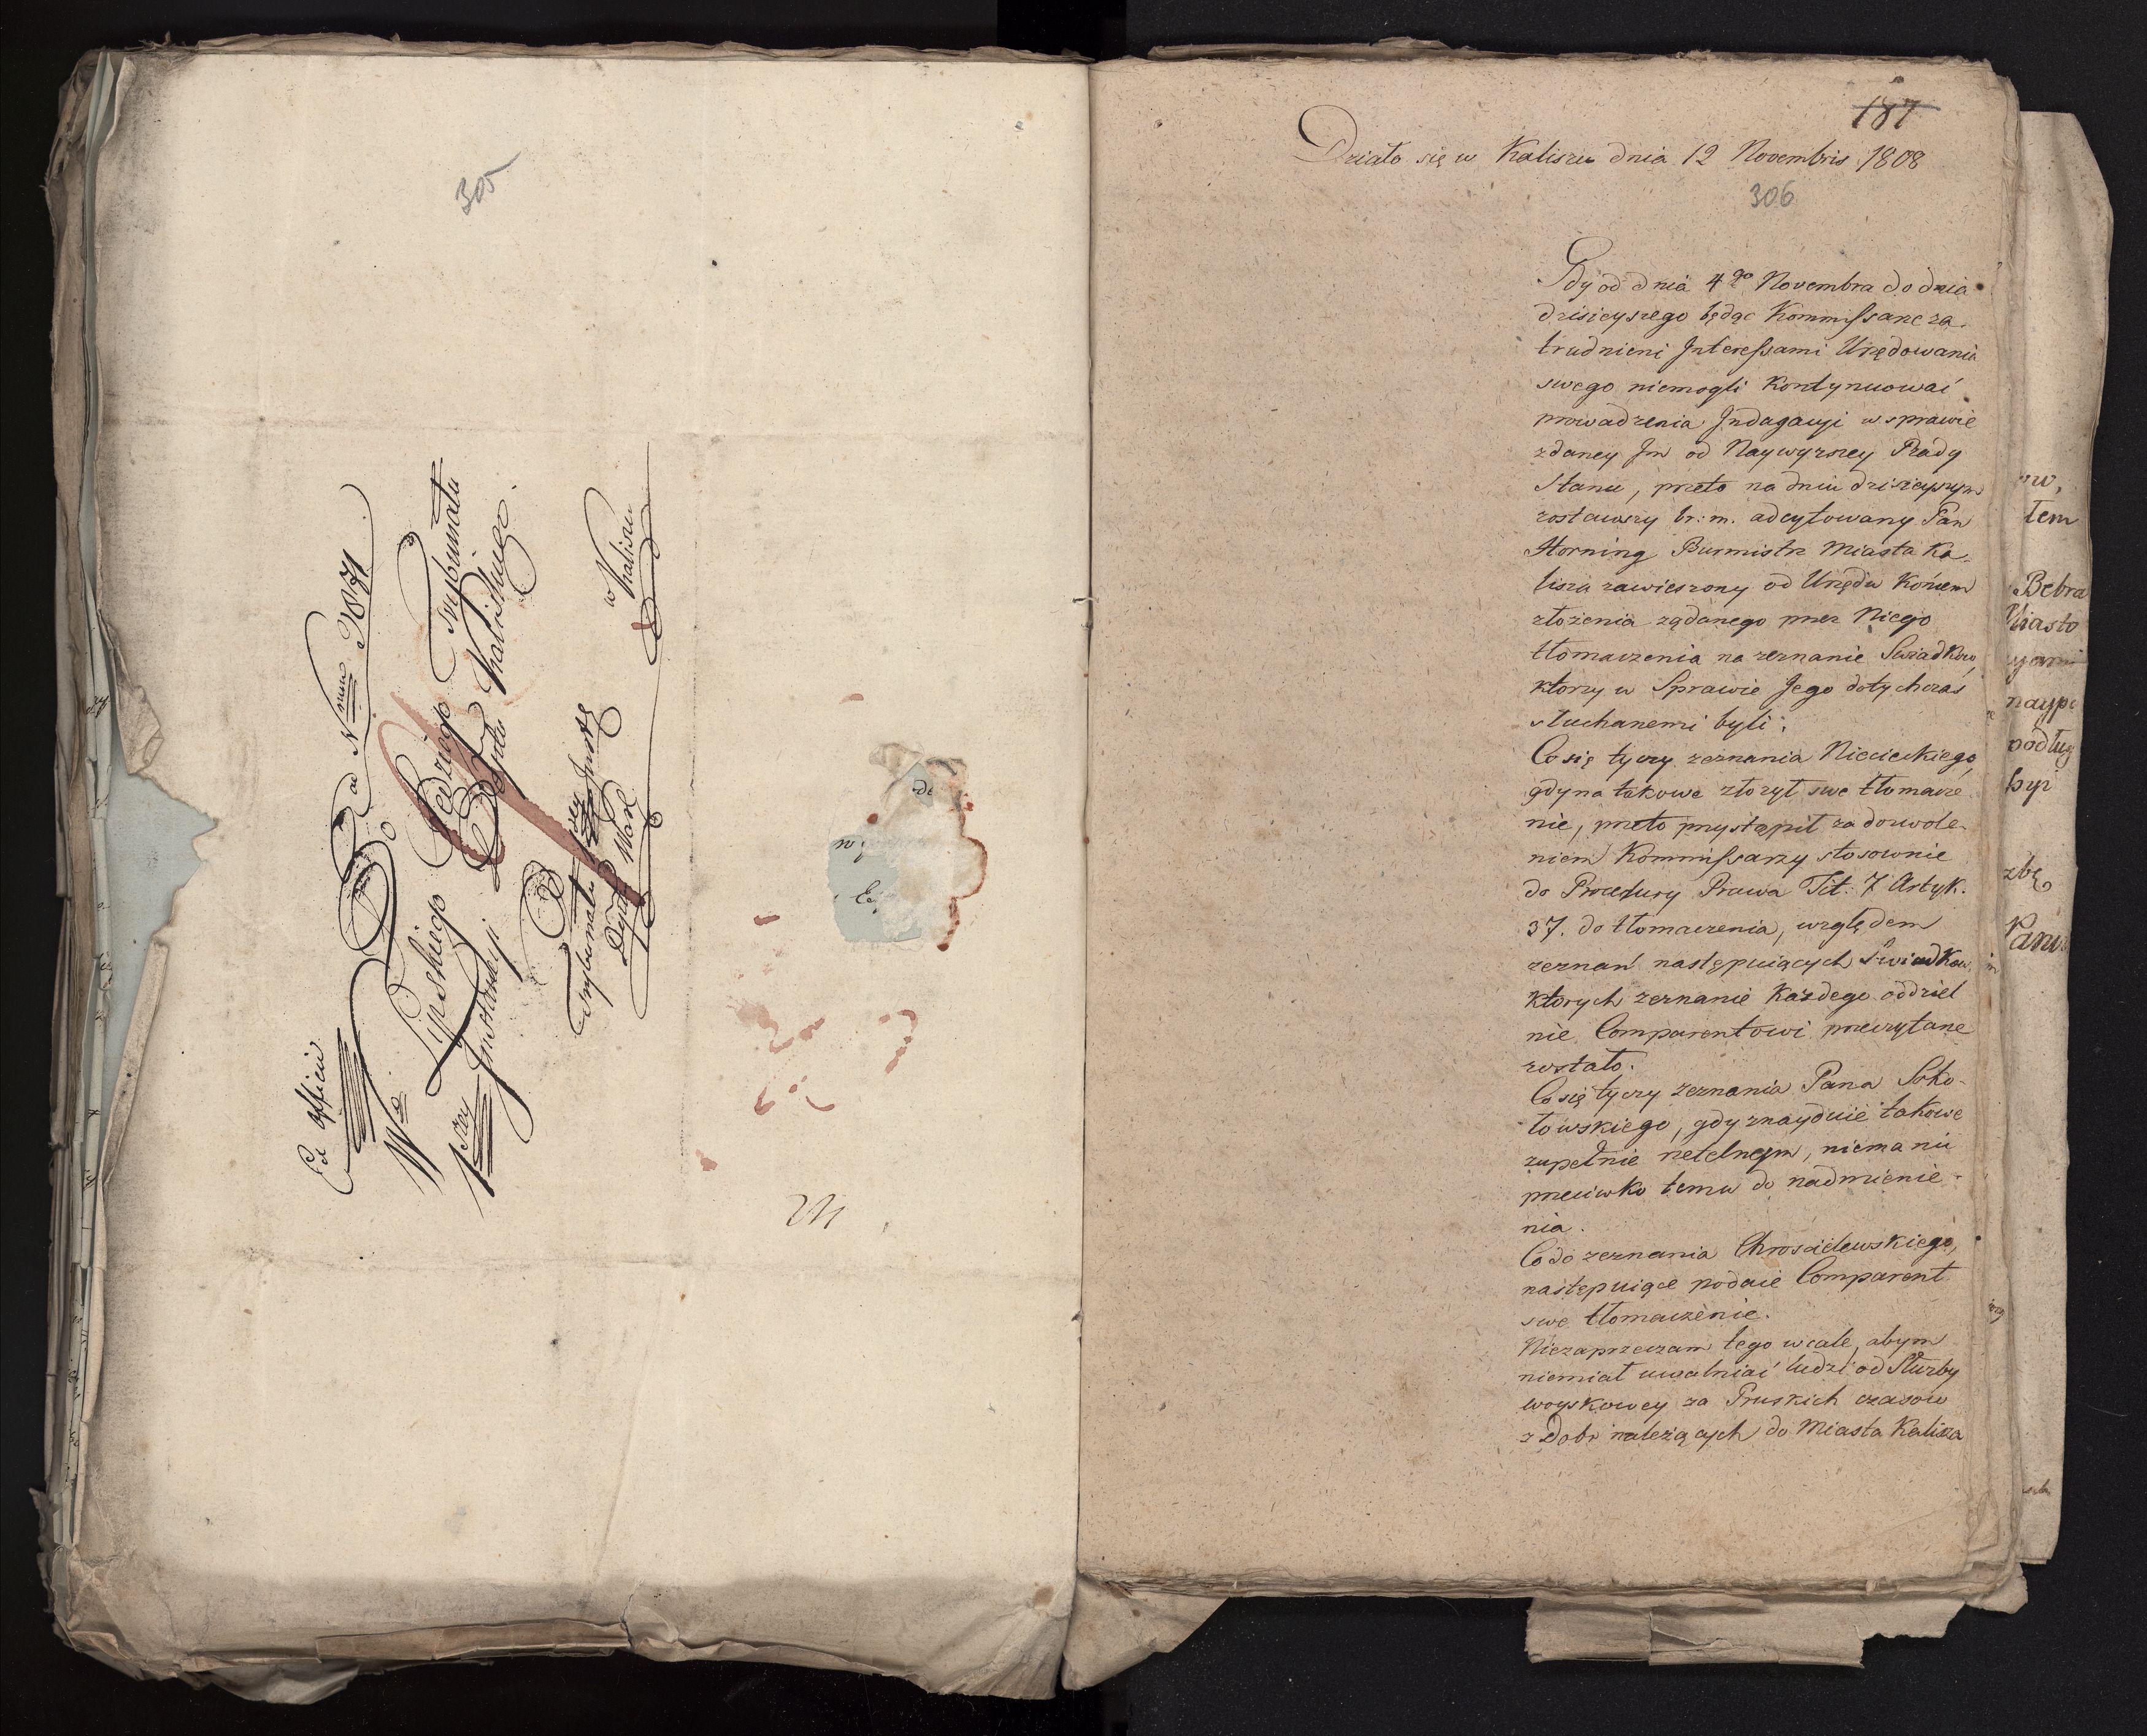 305
Ex officio
ad Num 2071
Do
Wo Lipskiego Sędziego Trybunału
1szey Instancyi Deptu Kaliskiego.
w Kaliszu
Trybunału 1szey Inst.
M
187
Działo się w Kaliszu dnia 12 Novembris 1808
306
Gdy od dnia 4go Novembra do dnia
dzisieyszego będąc Kommissarze za-
trudnieni Interessami Urzędowania
swego niemogli kontynuować
prowadzenia Indagacyi w sprawie
zdaney Im od Naywyzszey Rady
Stanu, przeto na dniu dzisieyszym
zostawszy br: m. adcytowany Pan
Horning Burmistrz Miasta Ka-
lisza zawieszony od Urzędu końcem
złożenia ządanego przez Niego
tłomaczenia na zeznanie Swiadkow,
ktorzy w Sprawie Jego dotychczas
słuchanemi byli;
Co się tyczy zeznania Niecieckiego,
gdy na takowe złozył swe tłomacze
nie, przeto przystąpił za dozwole-
niem Kommissarzy stosownie
do Procedury Prawa Tit: 7 Artyk.
37. do tłomaczenia, względem
zeznań następuiących Swiadkow,
ktorych zeznanie każdego oddziel
nie Comparentowi przeczytane
zostało.
Co się tyczy zeznania Pana Soko-
łowskiego, gdy znayduie takowe
zupełnie rzetelnym, niema nic
przeciwko temu do nadmienie-
nia.
Co do zeznania Chrościelewskiego,
następuiące podaie Comparent
swe tłomaczenie.
Niezaprzeczam tego wcale, abym
niemiał uwalniać ludzi od Służby
woyskowey za Pruskich czasow
z Dobr należących do Miasta Kalisza
tem
Bebra
Miasto
naypo
podług
byi
zbę